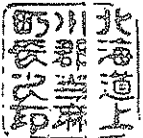 北海道上
川郡當麻
町長之印